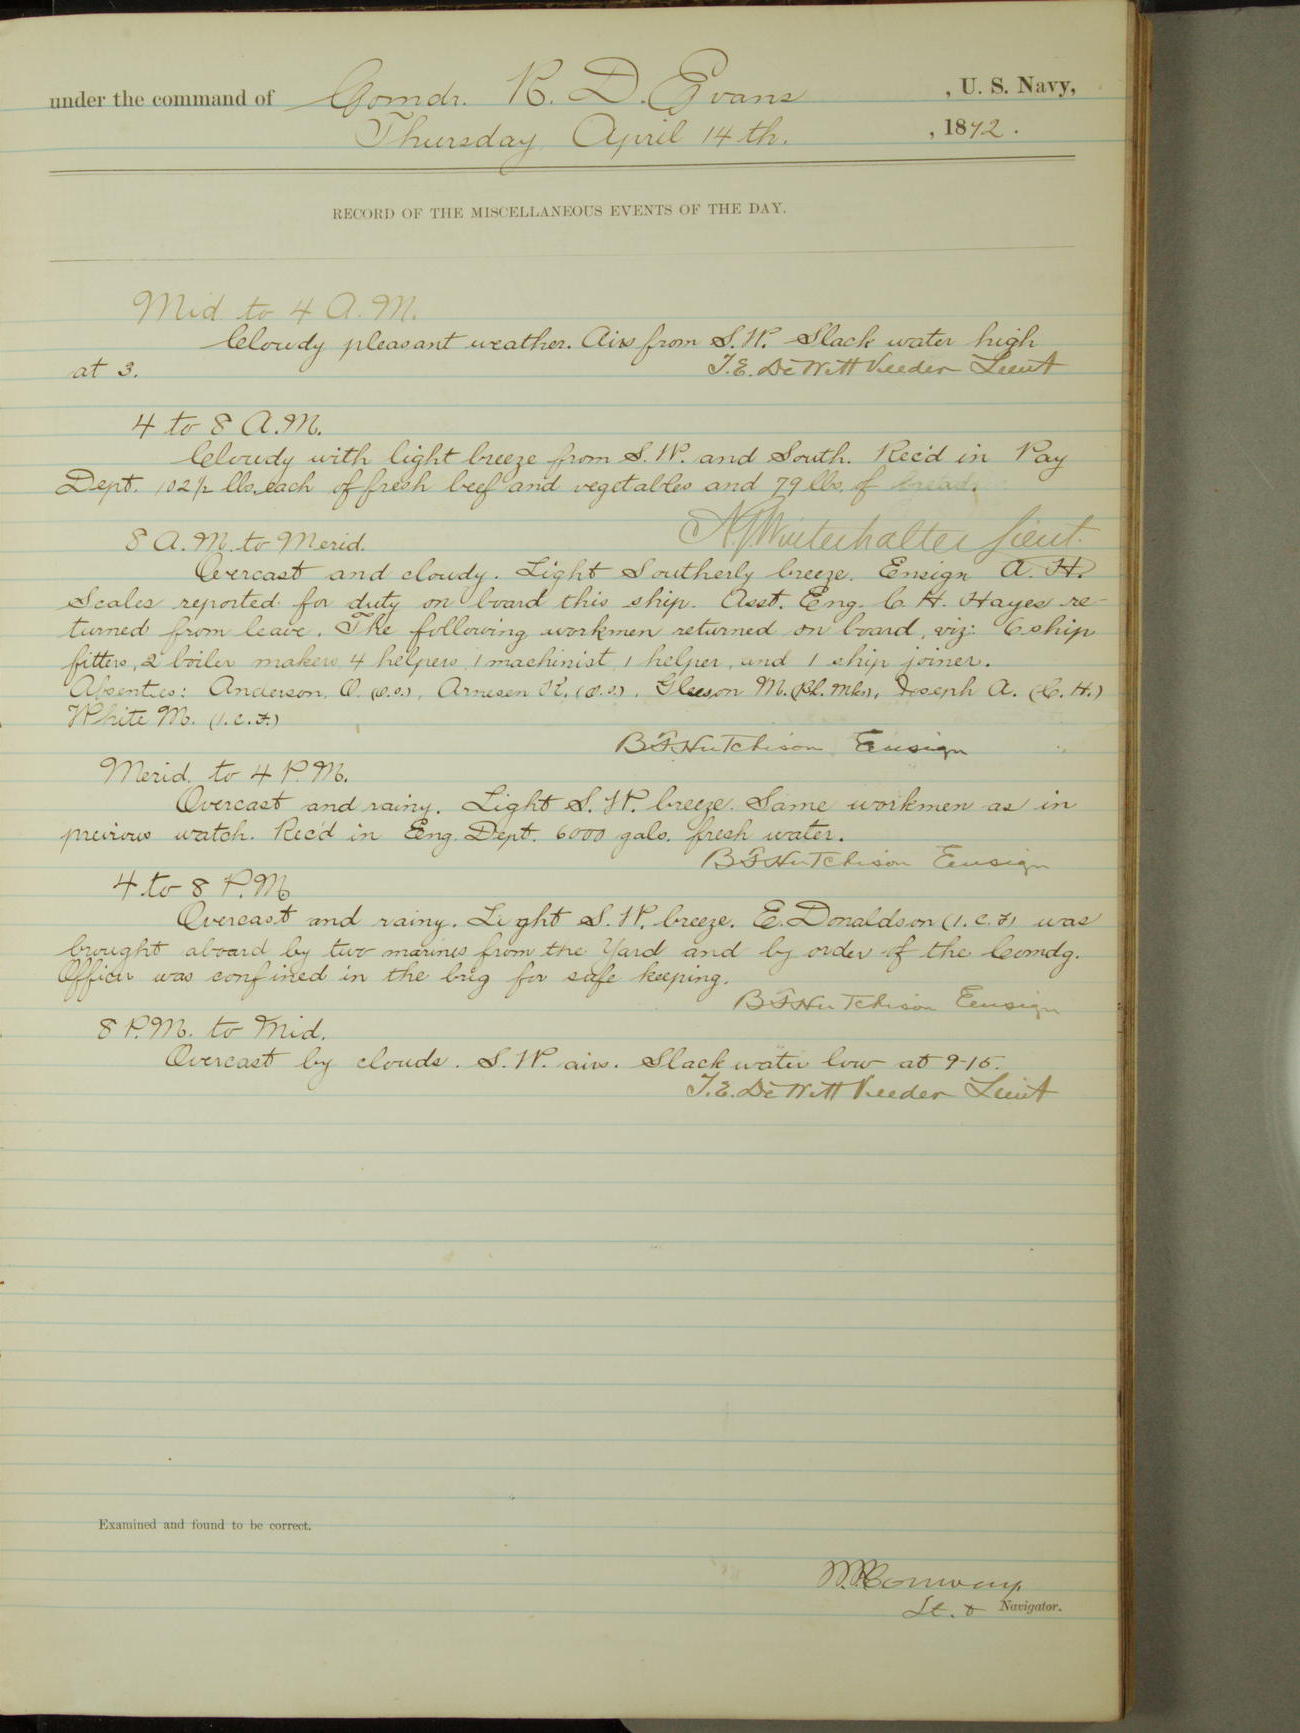 under the command of Comdr. R. D. Evans , U. S. Navy,
Thursday April 14th. , 1892.
RECORD OF THE MISCELLANEOUS EVENTS OF THE DAY.
Mid to 4 A.M.
Cloudy pleasant weather. Airs from S.W. Slack water high
at 3. T.E. DeWitt Veeder Lieut
4 to 8 A.M.
Cloudy with light breeze from S.W. and South. Rec'd in Pay
Dept. 102½ lbs. each of fresh beef and vegetables and 79 lbs. of bread.
A.G. Winterhalter Lieut.
8 A.M. to Merid.
Overcast and cloudy. Light Southerly breeze. Ensign A. H.
Scales reported for duty on board this ship. Asst. Eng. C. H. Hayes re-
turned from leave. The following workmen returned on board, viz: 6 ship
fitters, 2 boiler makers, 4 helpers, 1 machinist, 1 helper, and 1 ship joiner.
Absentees: Anderson, O. (O.S.), Arnesen K. (O.S.), Gleeson M. (Bl. Mkr), Joseph A. (C. H.)
White M. (1.C.F.)
B F Hutchison Ensign
Merid. to 4 P.M.
Overcast and rainy. Light S.W. breeze. Same workmen as in
previous watch. Rec'd in Eng. Dept. 6000 gals. fresh water.
B F Hutchison Ensign
4 to 8 P.M
Overcast and rainy. Light S.W. breeze. E. Donaldson (1.C.F) was
brought aboard by two marines from the Yard and by order of the Comdg.
Officer was confined in the brig for safe keeping.
B F Hutchison Ensign
8 P.M. to Mid.
Overcast by clouds. S.W. airs. Slack water low at 9-15.
T.E. DeWitt Veeder Lieut
Examined and found to be correct.
Conway
Lt. & Navigator.